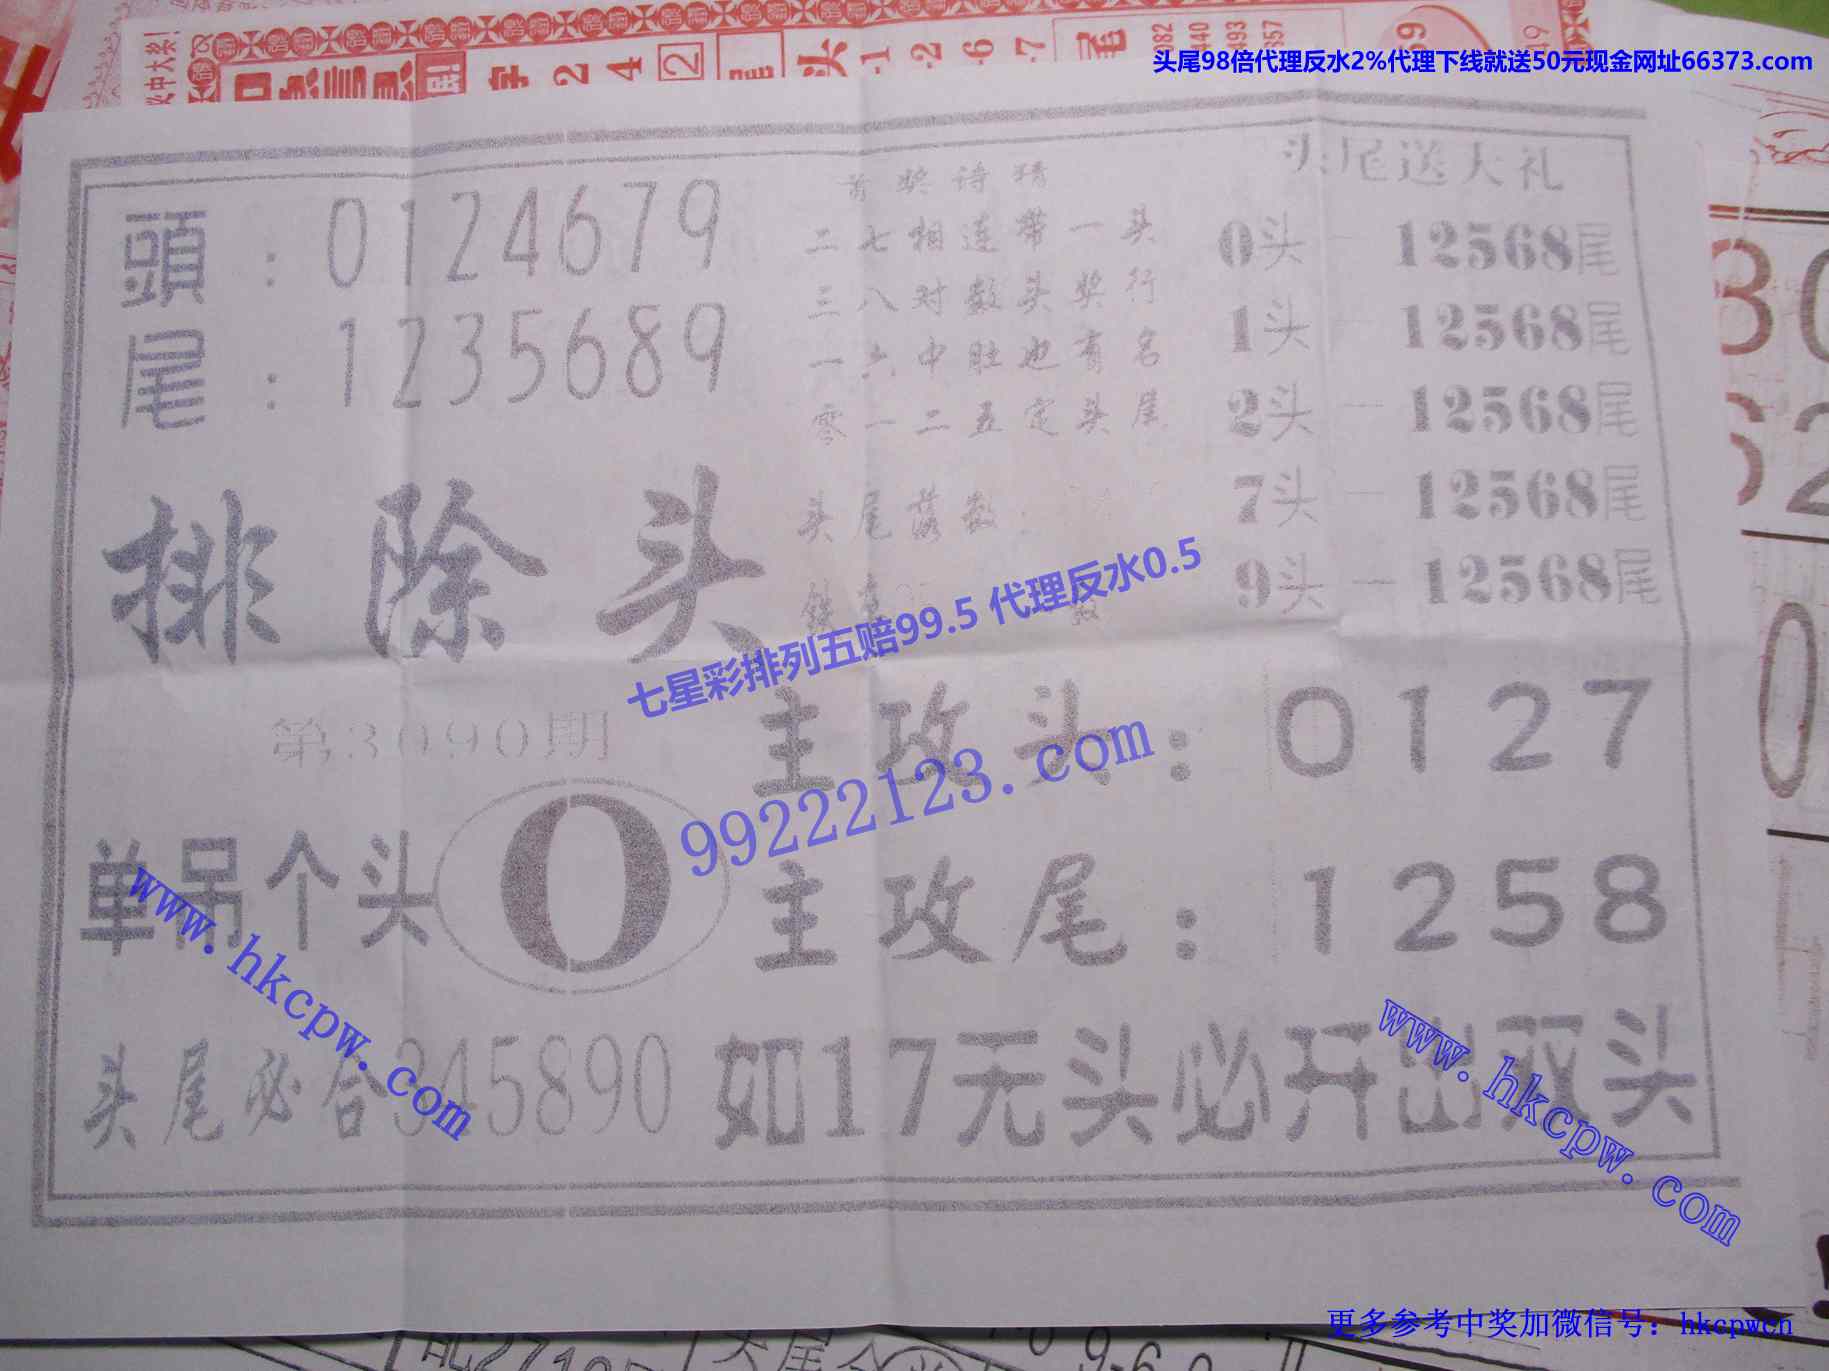 头尾98倍代理反水2%代理下线就送50元现金网址66373.com
字 2 4 2 尾
头 1 2 6 7 尾
頭：0124679
尾：1235689
首奖诗猜
二七相连带一头
三八对数头奖行
一六中肚也有名
零一二五定头尾
头尾送大礼
0头－12568尾
1头－12568尾
2头－12568尾
7头－12568尾
9头－12568尾
排除头
头尾落数
七星彩排列五赔99.5 代理反水0.5
第3090期
主攻头：0127
99222123.com
单吊个头 0
主攻尾：1258
www.hkcpw.com
头尾必合345890
如17无头必开出双头
www.hkcpw.com
更多参考中奖加微信号：hkcpwcn